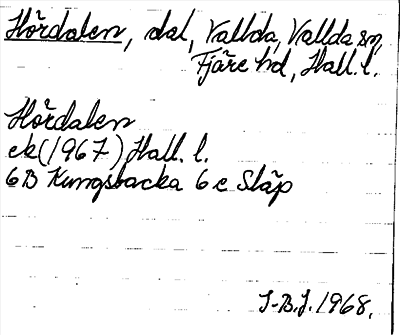 Hördalen, dal, Vallda, Vallda sn,
Fjäre hd, Hall. l.
Hördalen
ek (1967) Hall. l.
6B Kungsbacka 6 c Släp
I-B.J. 1968.